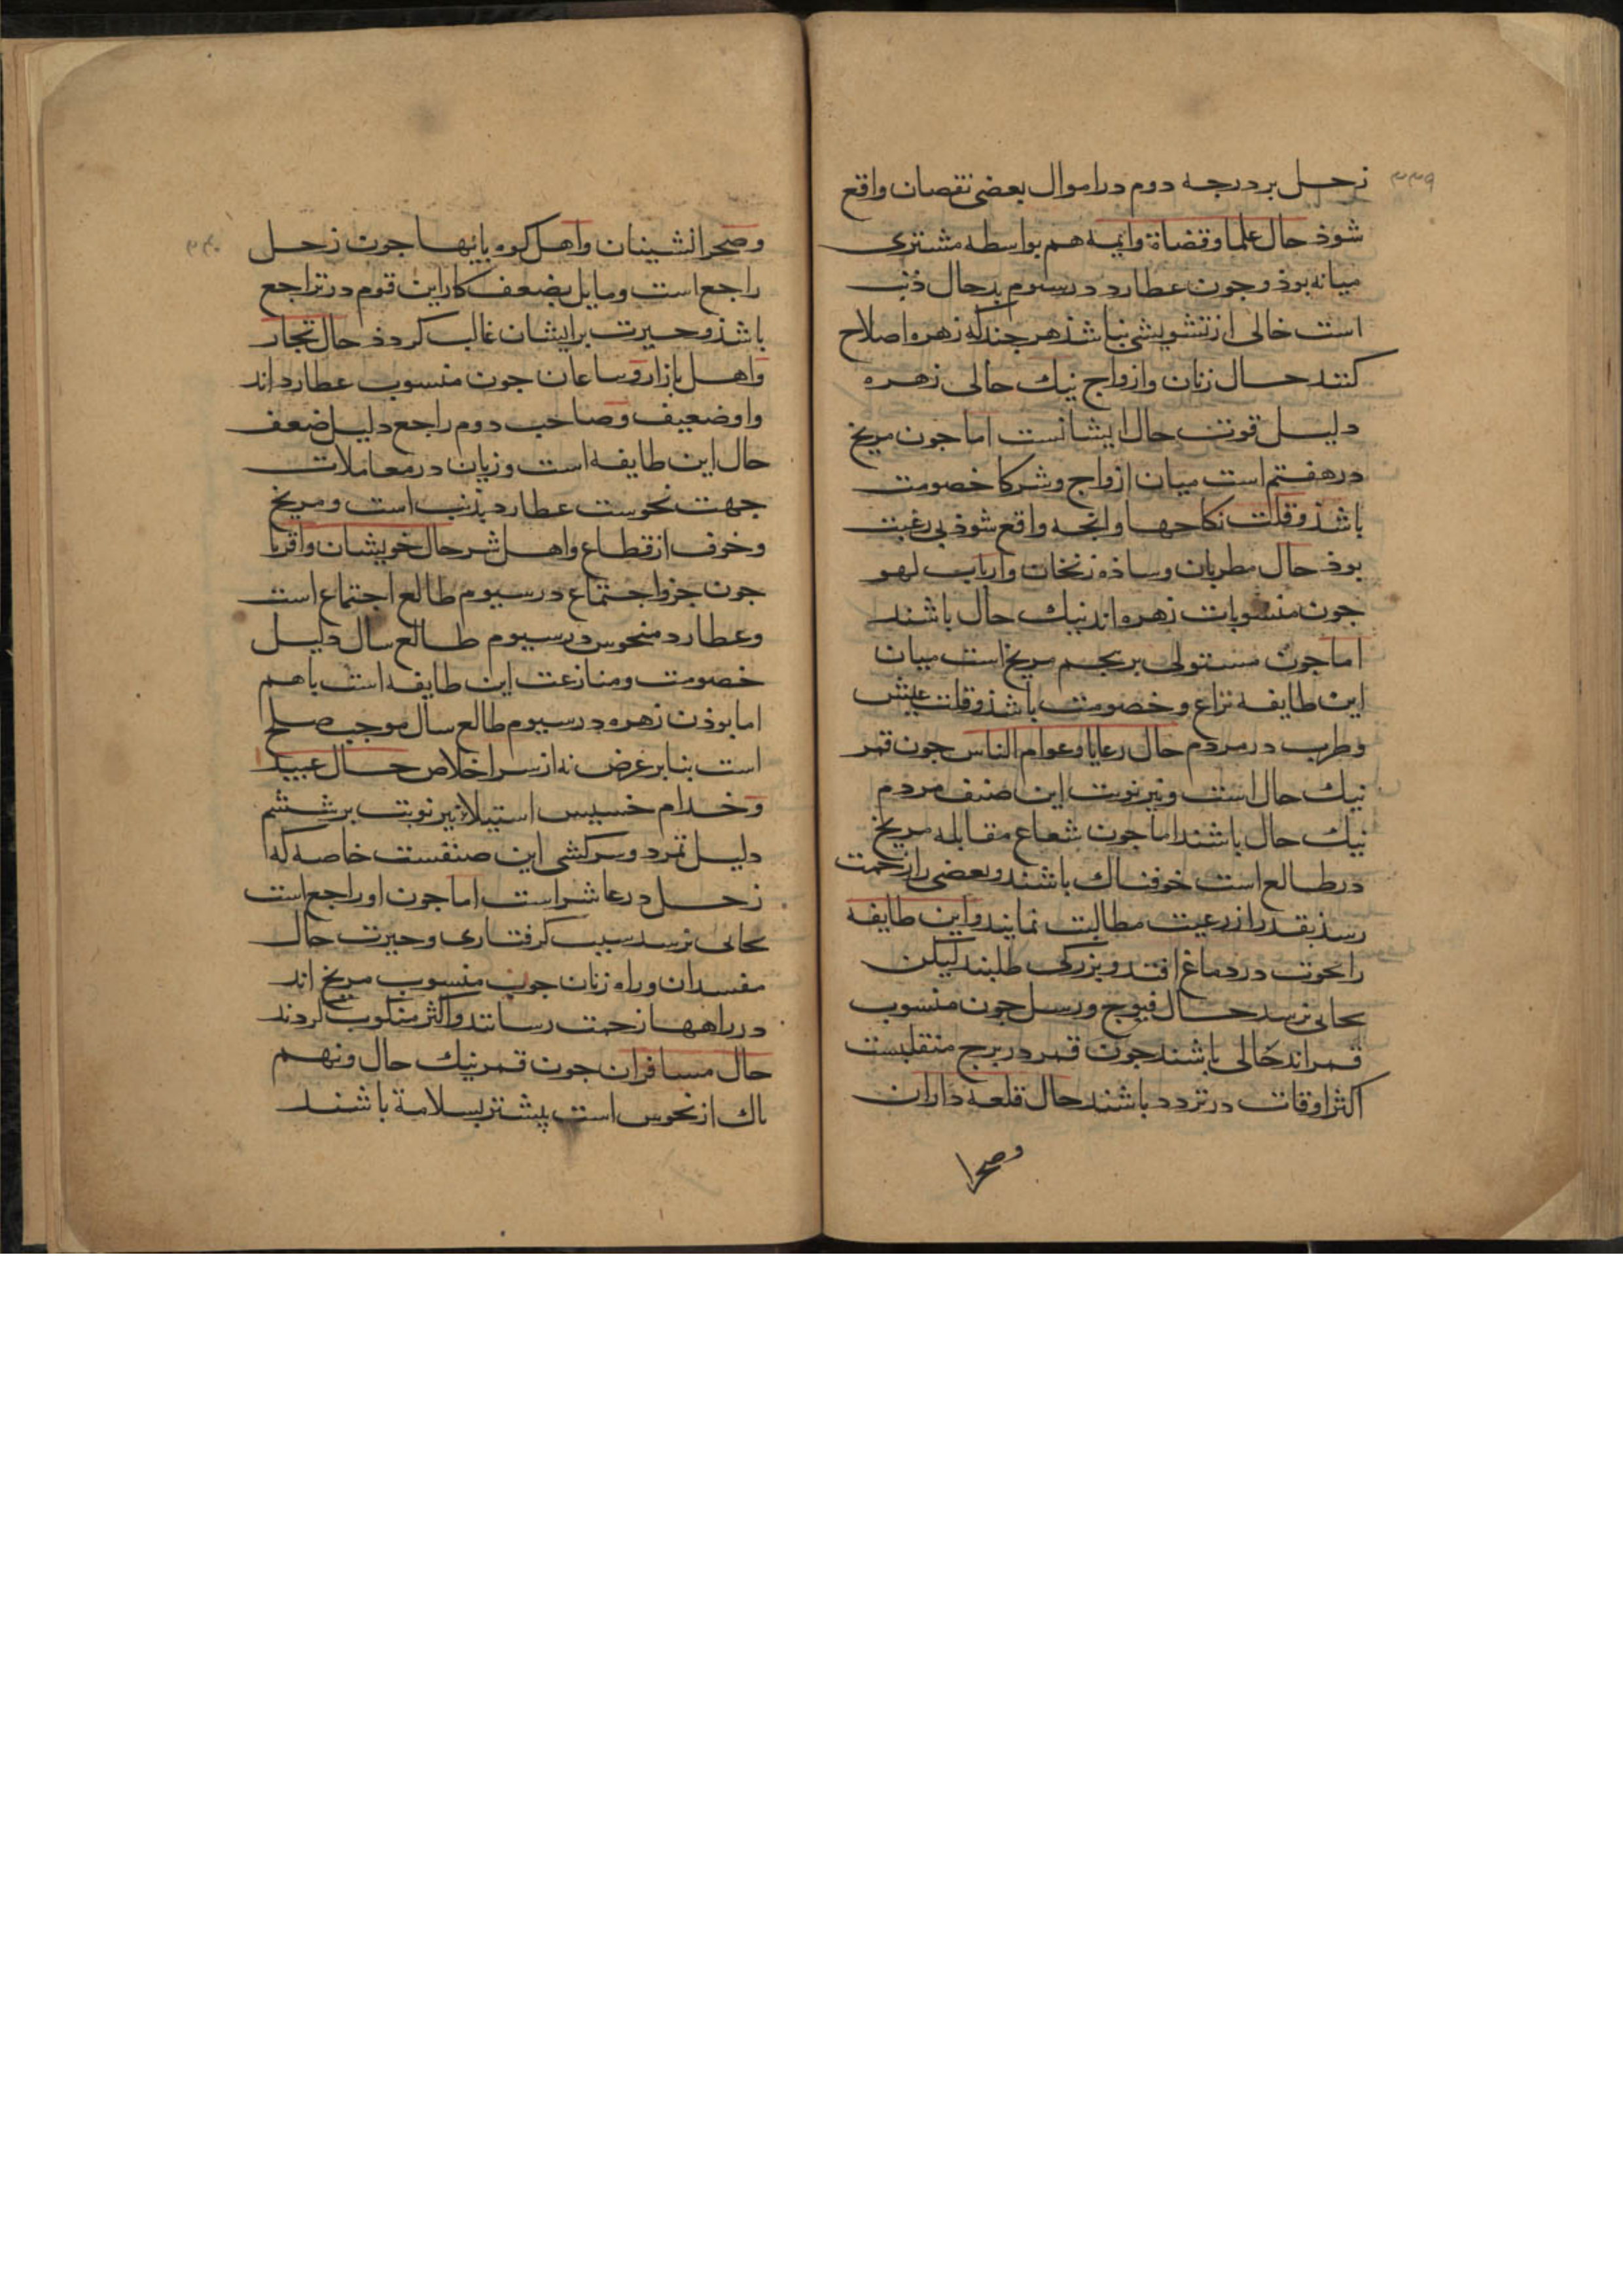 ۳۳۹
زحل بر درجه دوم در اموال بعضی نقصان واقع
شوذ حال علما و قضاة وایمه هم بواسطه مشتری
میانه بوذ و جون عطارد در سیوم بدحال ذنب
است خالی از تشویشی نباشذ هر جند که زهره اصلاح
کنند حال زنان وازواج نیك حالی زهره
دلیل قوت حال ایشانست اما جون مریخ
در هفتم است میان ازواج وشرکا خصومت
باشذ و قلت نکاحها وانجه واقع شوذ بی رغبت
بوذ حال مطربان وساذه زنخان وارباب لهو
جون منسوبات زهره اند نیك حال باشند
اما جون مستولی بر پنجم مریخ است میان
این طایفه نزاع و خصومت باشذ و قلت عیش
وطرب در مردم حال رعایا وعوام الناس جون قمر
نیك حال است ونیر نوبت این صنف مردم
نیك حال باشند اما جون شعاع مقابله مریخ
در طالع است خوفناك باشند وبعضی را زحمت
رسذ بقدر از رعیت مطالبت نمایند واین طایفه
را نخوت در دماغ افتد و بزرکی طلبند لیکن
بجائی نرسد حال فیوج ورسل جون منسوب
قمراند خالی باشند جون قمر در برج منقلبست
اکثر اوقات در تردد باشند حال قلعه داران
وصحرا
۳۴۰
وصحرانشینان واهل کوه پایها جون زحل
راجع است ومایل بضعف کار این قوم در تراجع
باشذ و حیرت بر ایشان غالب کردذ حال تجار
واهل بازار وساعان جون منسوب عطارد اند
واو ضعیف وصاحب دوم راجع دلیل ضعف
حال این طایفه است وزیان در معاملات
جهت نحوست عطارد بذنب است و مریخ
وخوف از قطاع واهل شر حال خویشان واقربا
جون جزو اجتماع در سیوم طالع اجتماع است
وعطارد منحوس در سیوم طالع سال دلیل
خصومت ومنازعت این طایفه است باهم
اما بوذن زهره در سیوم طالع سال موجب صلح
است بنا بر غرض نه از سر اخلاص حال عبید
وخدام خسیس استیلا نیر نوبت بر ششم
دلیل تمرد وسرکشی این صنفست خاصه که
زحل در عاشر است اما جون او راجع است
بجائی نرسد سبب کرفتاری وحیرت حال
مفسدان وراه زنان جون منسوب مریخ اند
در راهها زحمت رسانند واکثر منکوب کردند
حال مسافران جون قمر نیك حال ونهم
پاك از نحوس است پیشتر بسلامة باشند